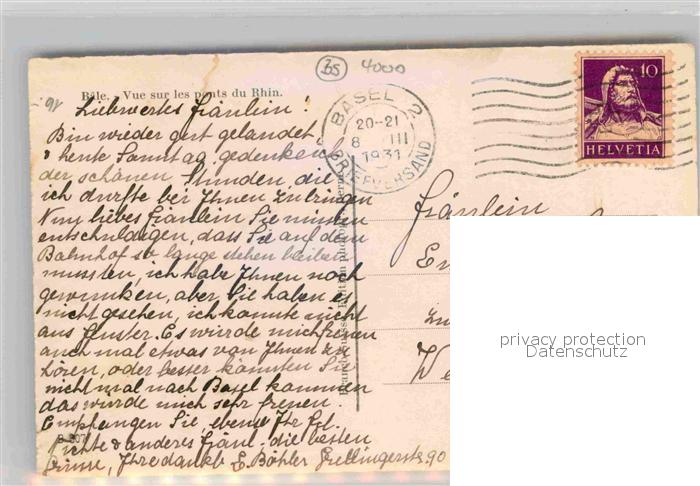 BS 4000
Bâle. - Vue sur les ponts du Rhin.
Liebwertes Fräulein!
Bin wieder gut gelandet
& heute Samstag gedenke ich
der schönen Stunden, die
ich durfte bei Ihnen zubringen
Nun liebes Fräulein Sie müssen
entschuldigen, dass Sie auf dem
Bahnhof so lange stehen bleiben
mussten, ich habe Ihnen noch
gewunken, aber Sie haben es
nicht gesehen, ich konnte nicht
aus Fenster. Es würde mich freuen
auch mal etwas von Ihnen zu
hören, oder besser könnten Sie
nicht mal nach Basel kommen
das würde mich sehr freuen.
Empfangen Sie, ebenso Ihr Frl.
Nichte & anderes Fräul. die besten
Grüsse, Ihre dankb. E. Böhler Grellingerstr. 90
BASEL 2
20-21
8 III
1931
BRIEFVERSAND
10
HELVETIA
Fräulein
privacy protection
Datenschutz